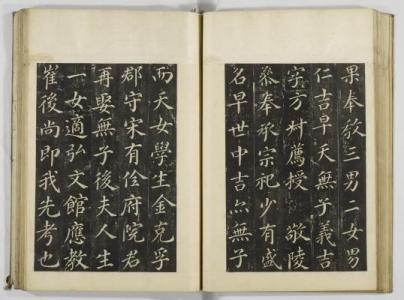 果奉三男二女男
仁吉早夭無子義吉
字方叔薦授 敬陵
叅奉承宗祀少有盛
名早世中吉亦無子
而夭女學生金克孚
郡守宋有佺府院君
再娶無子後夫人生
一女適弘文館應教
崔後尚即我先考也